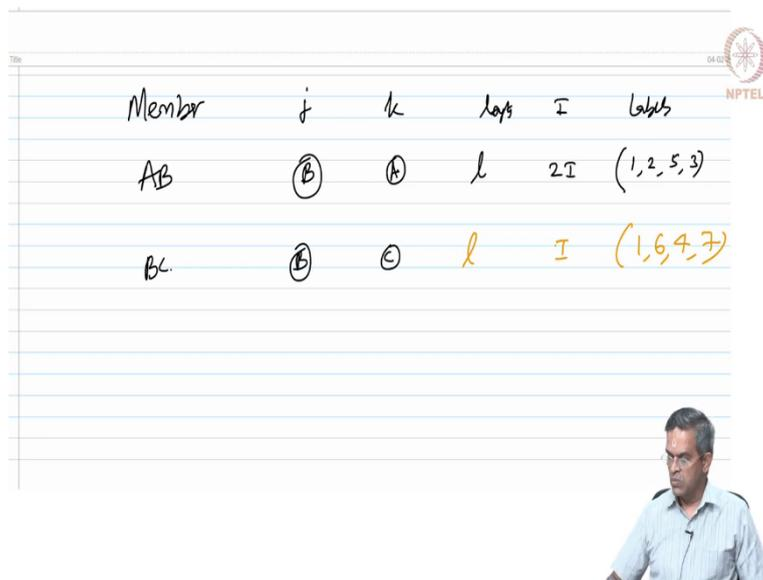 Title
04-02
NPTEL
Member j k I Labels
AB B A l 2I (1, 2, 5, 3)
BC. B C l I (1, 6, 4, 7)